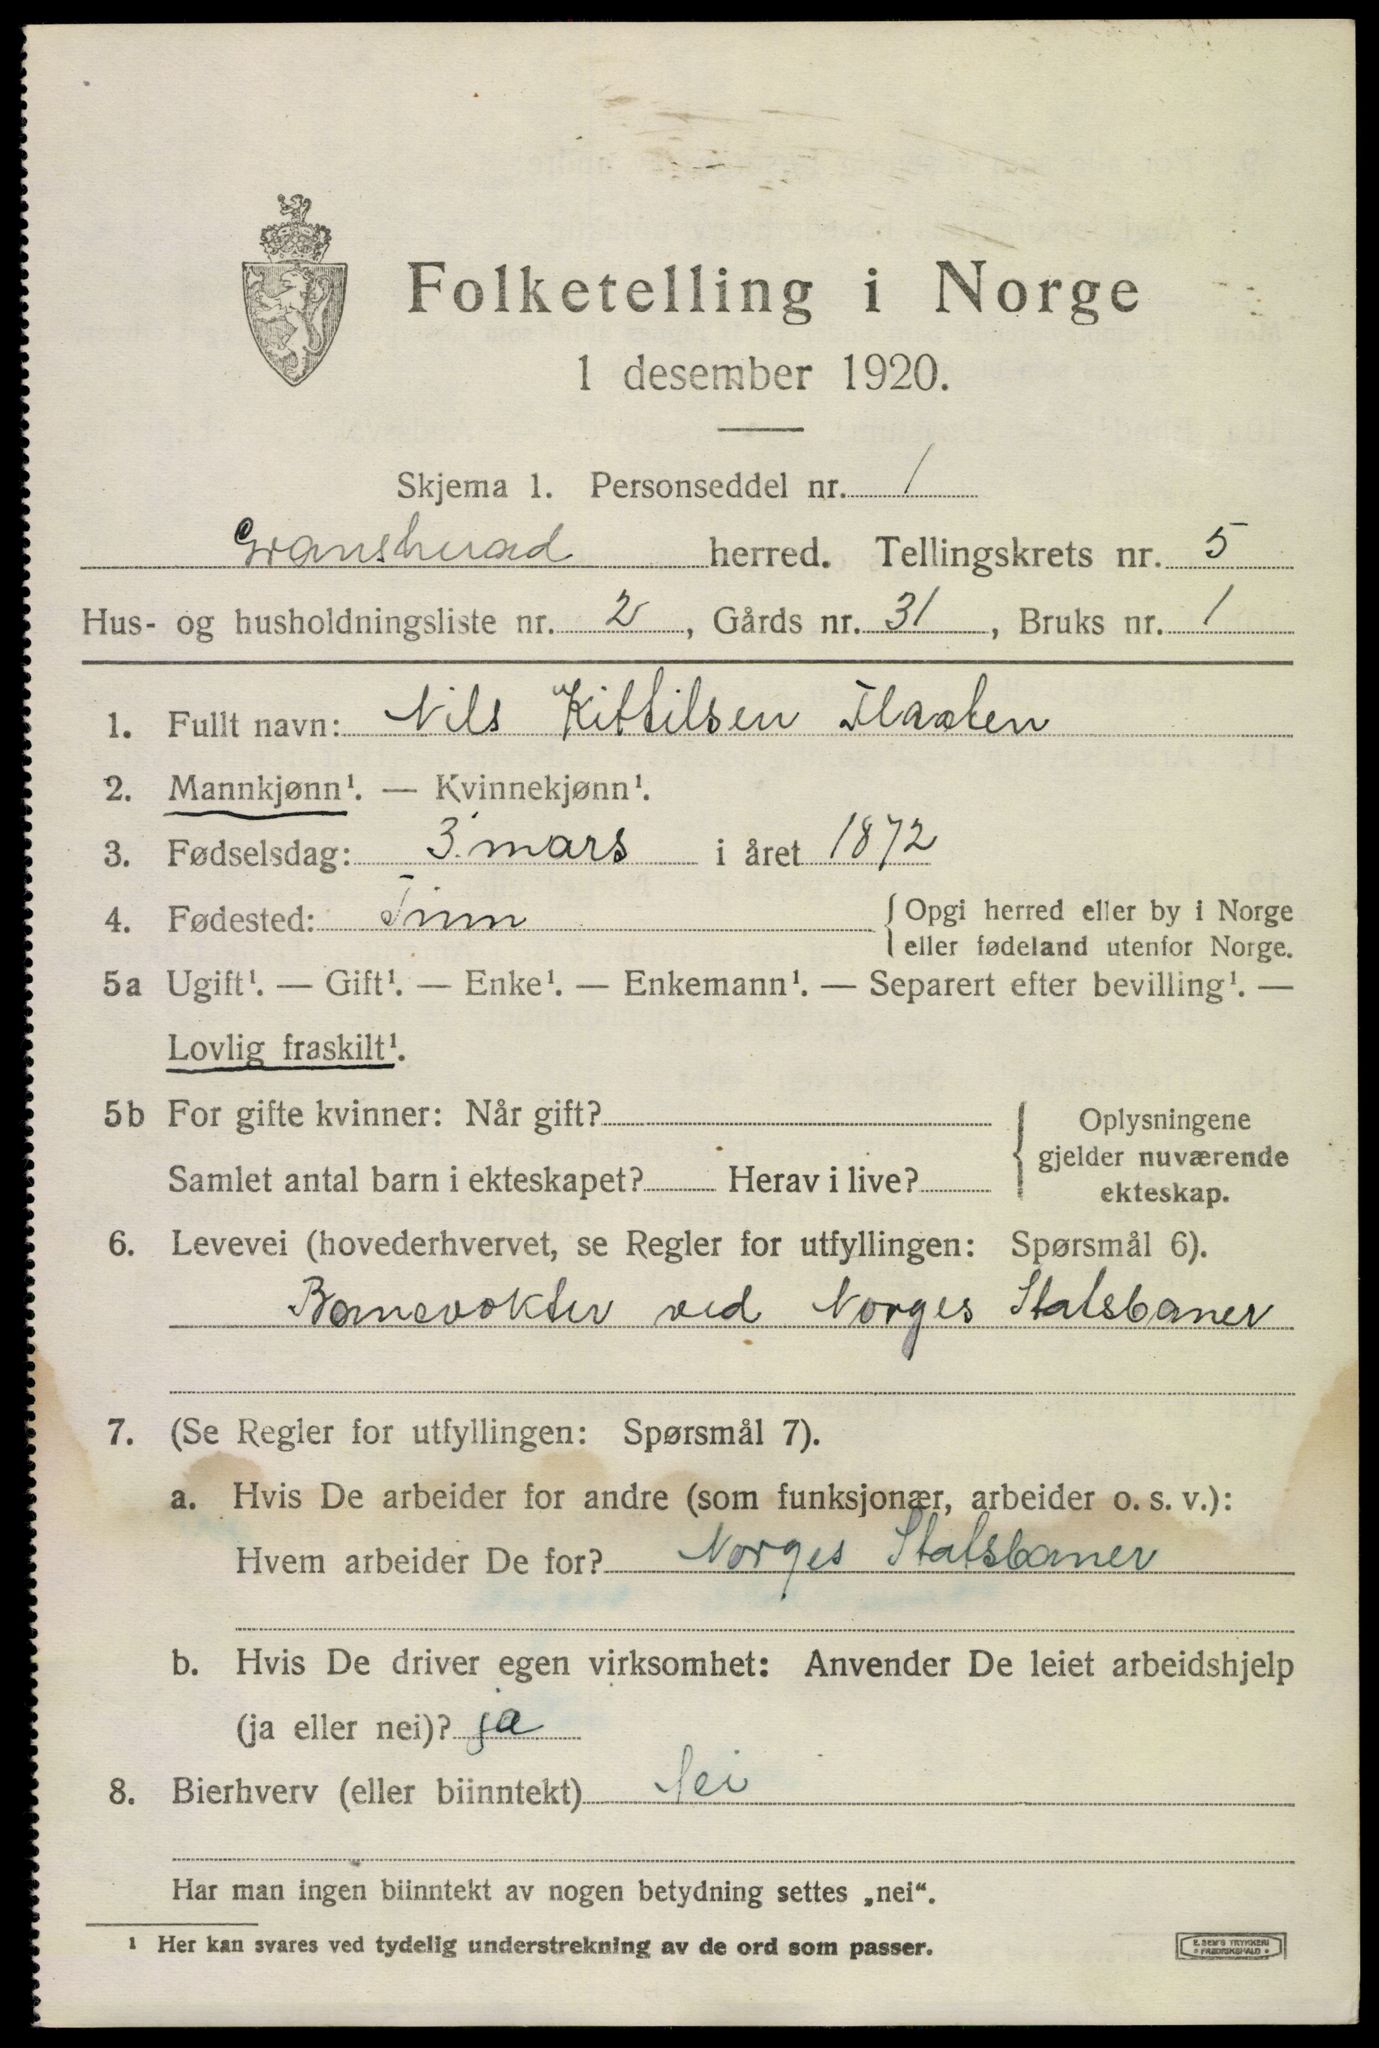 Folketelling i Norge
1 desember 1920.
Skjema 1. Personseddel nr. 1
Gransherad herred. Tellingskrets nr. 5
Hus- og husholdningsliste nr. 2, Gårds nr. 31, Bruks nr. 1
1. Fullt navn: Nils Kittilsen Flaaten
2. Mannkjønn¹. — Kvinnekjønn¹.
3. Fødselsdag: 3. mars i året 1872
4. Fødested: Tinn { Opgi herred eller by i Norge
eller fødeland utenfor Norge.
5a Ugift¹. — Gift¹. — Enke¹. — Enkemann¹. — Separert efter bevilling¹. —
Lovlig fraskilt¹.
5b For gifte kvinner: Når gift?
Samlet antal barn i ekteskapet? Herav i live?
{ Oplysningene
gjelder nuværende
ekteskap.
6. Levevei (hovederhvervet, se Regler for utfyllingen: Spørsmål 6).
Banevokter ved Norges Statsbaner
7. (Se Regler for utfyllingen: Spørsmål 7).
a. Hvis De arbeider for andre (som funksjonær, arbeider o. s. v.):
Hvem arbeider De for? Norges Statsbaner
b. Hvis De driver egen virksomhet: Anvender De leiet arbeidshjelp
(ja eller nei)? ja
8. Bierhverv (eller biinntekt) Nei
Har man ingen biinntekt av nogen betydning settes „nei“.
¹ Her kan svares ved tydelig understrekning av de ord som passer.
E. SEM'S TRYKKERI
* FREDRIKSHALD *